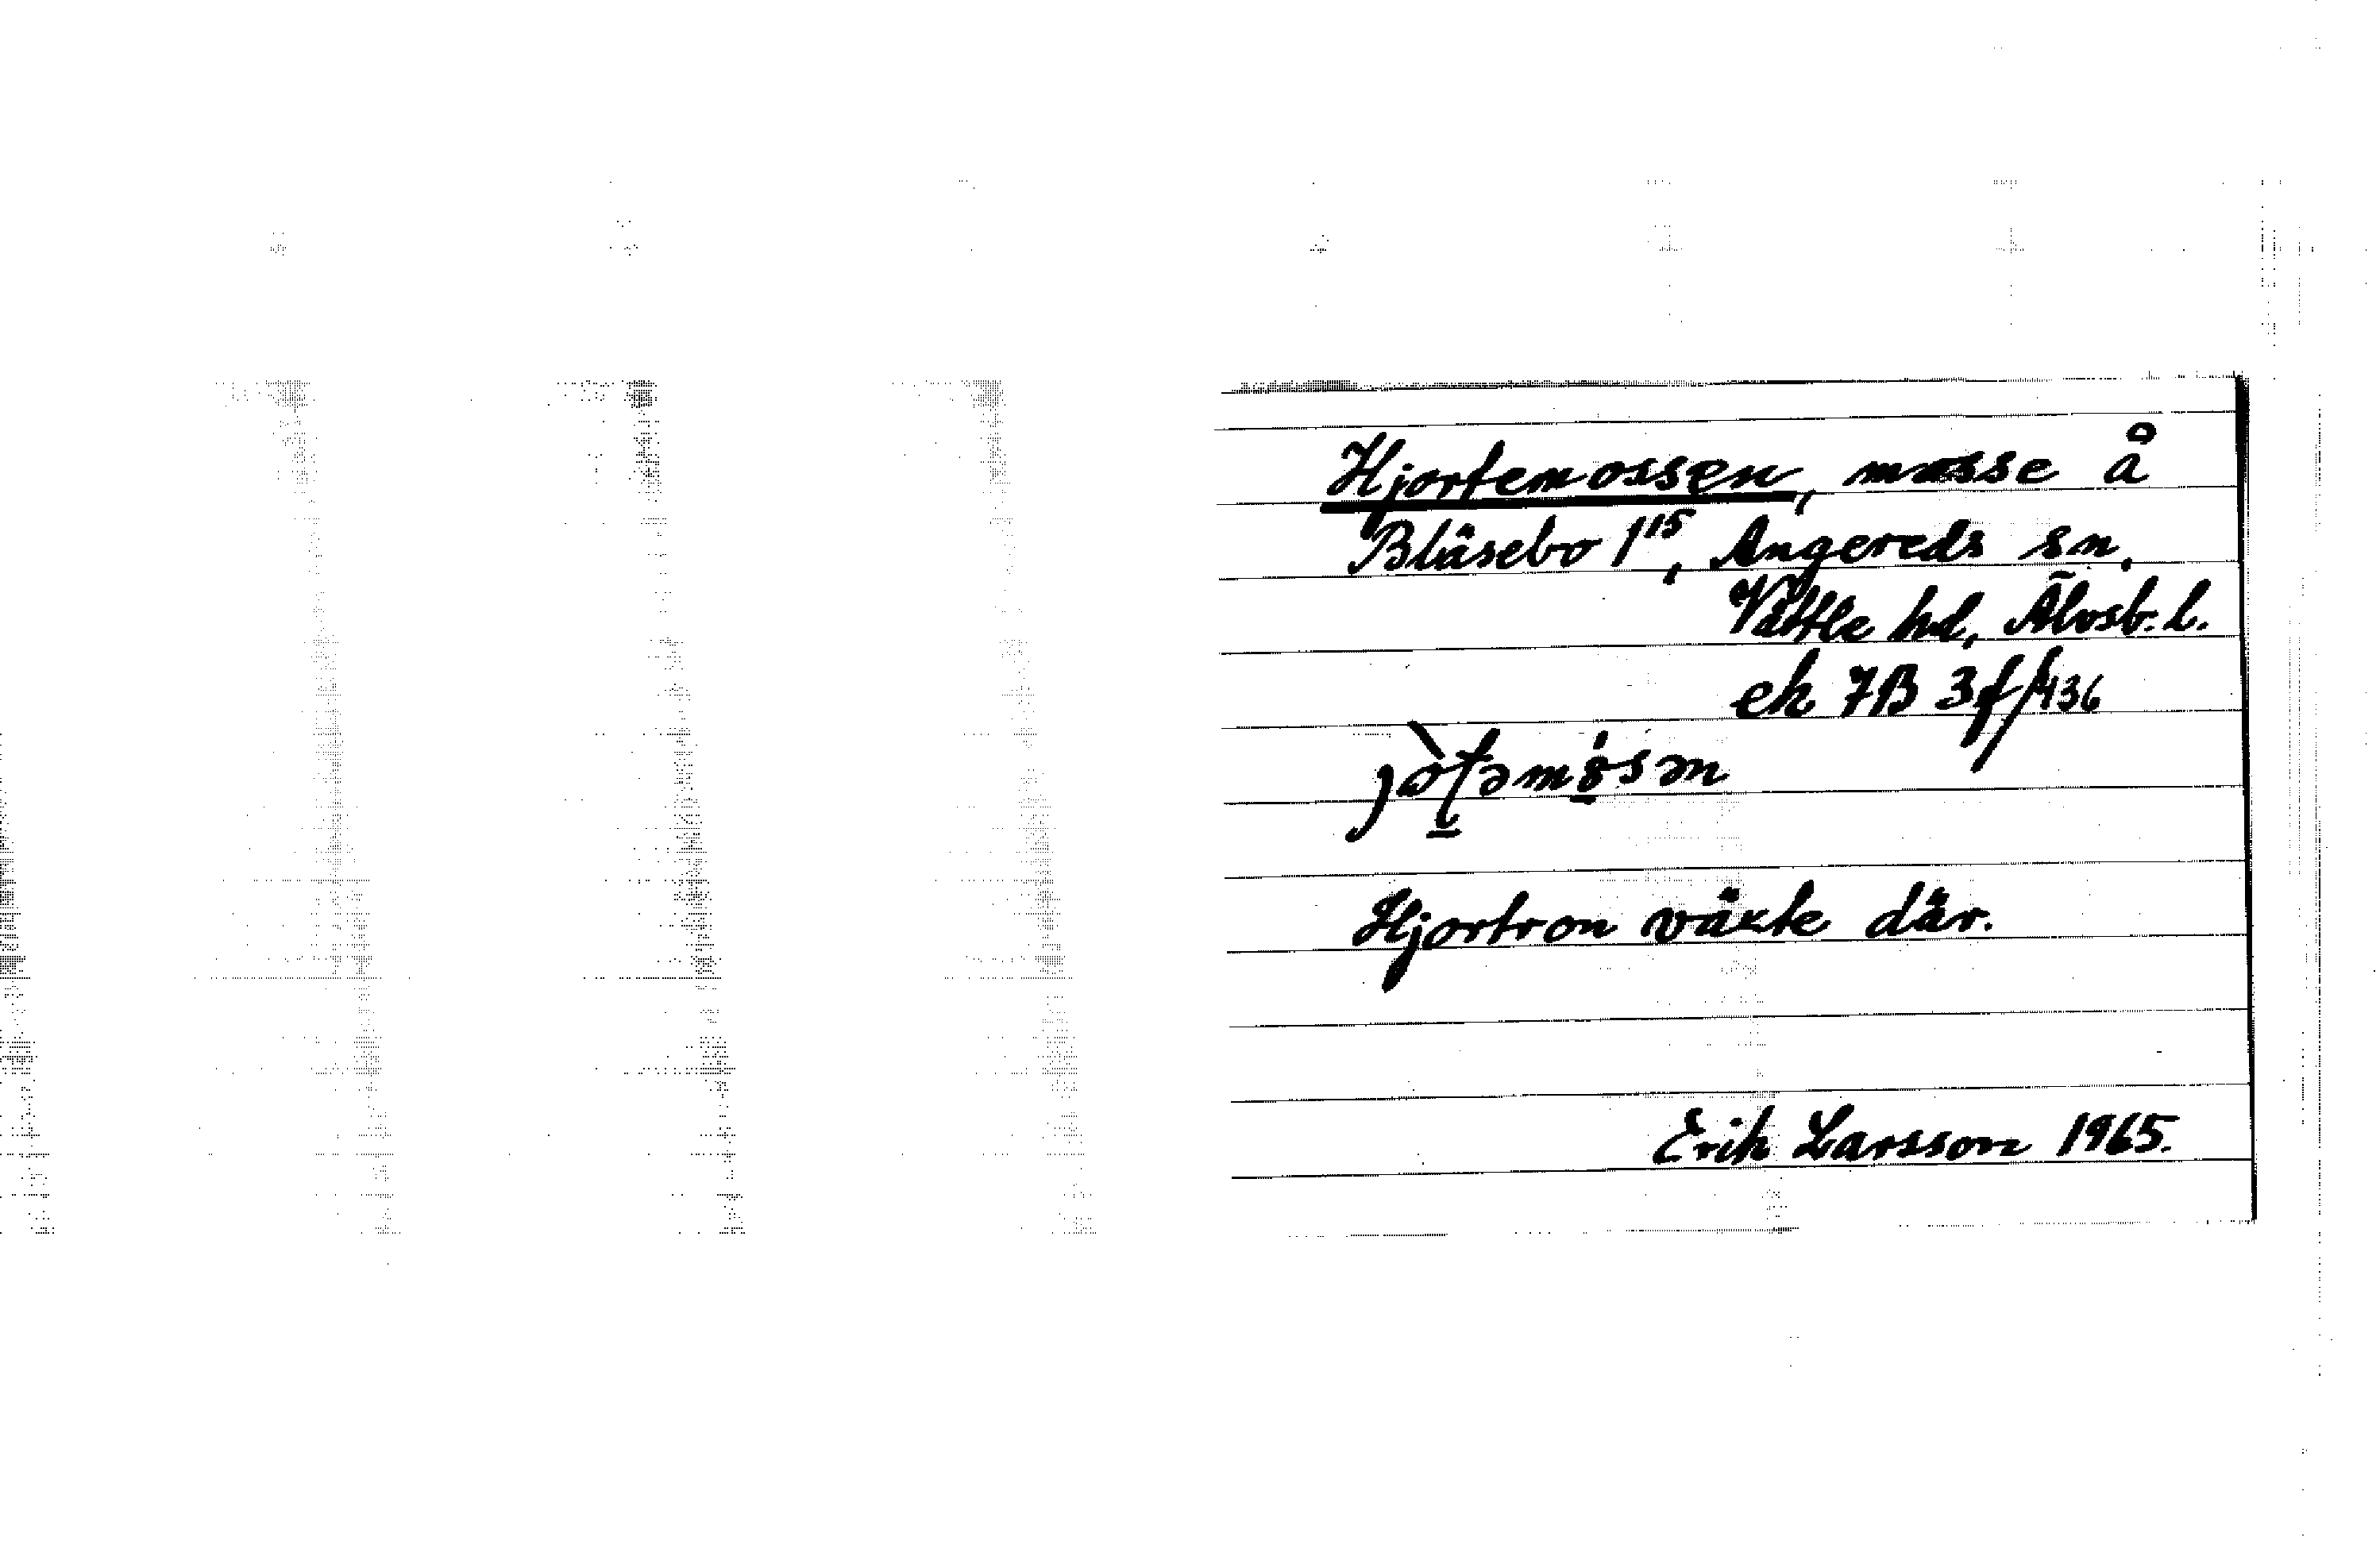 Hjortemossen, mosse å
Bläsebo 1¹⁵, Angereds sn,
Vättle hd, Älvsb. l.
ek 7B 3f/436
Hjortron växte där.
Erik Larsson 1965.